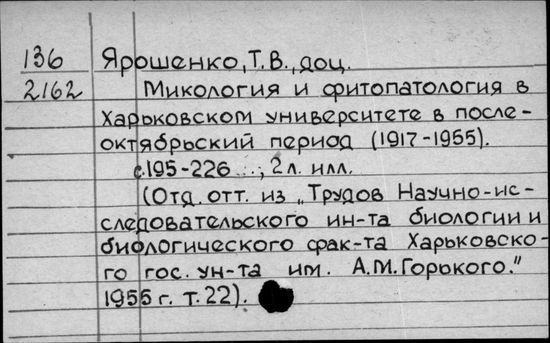 136
2162
Ярошенко, Т. В., доц.
Микология и фитопатология в
Харьковском университете в после-
октябрьский период (1917-1955).
с.195-226 ; 2 л. илл.
(Отд. отт. из „Трудов Научно-ис-
следовательского ин-та биологии и
биологического фак-та Харьковско-
го гос. ун-та им. А.М. Горького."
1956 г. т. 22).